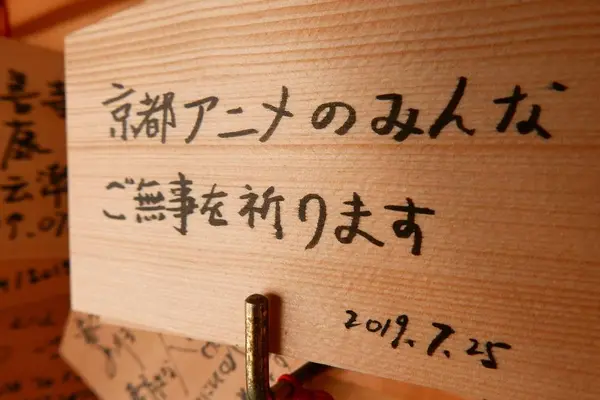 京都アニメのみんな
ご無事を祈ります
2019.7.25